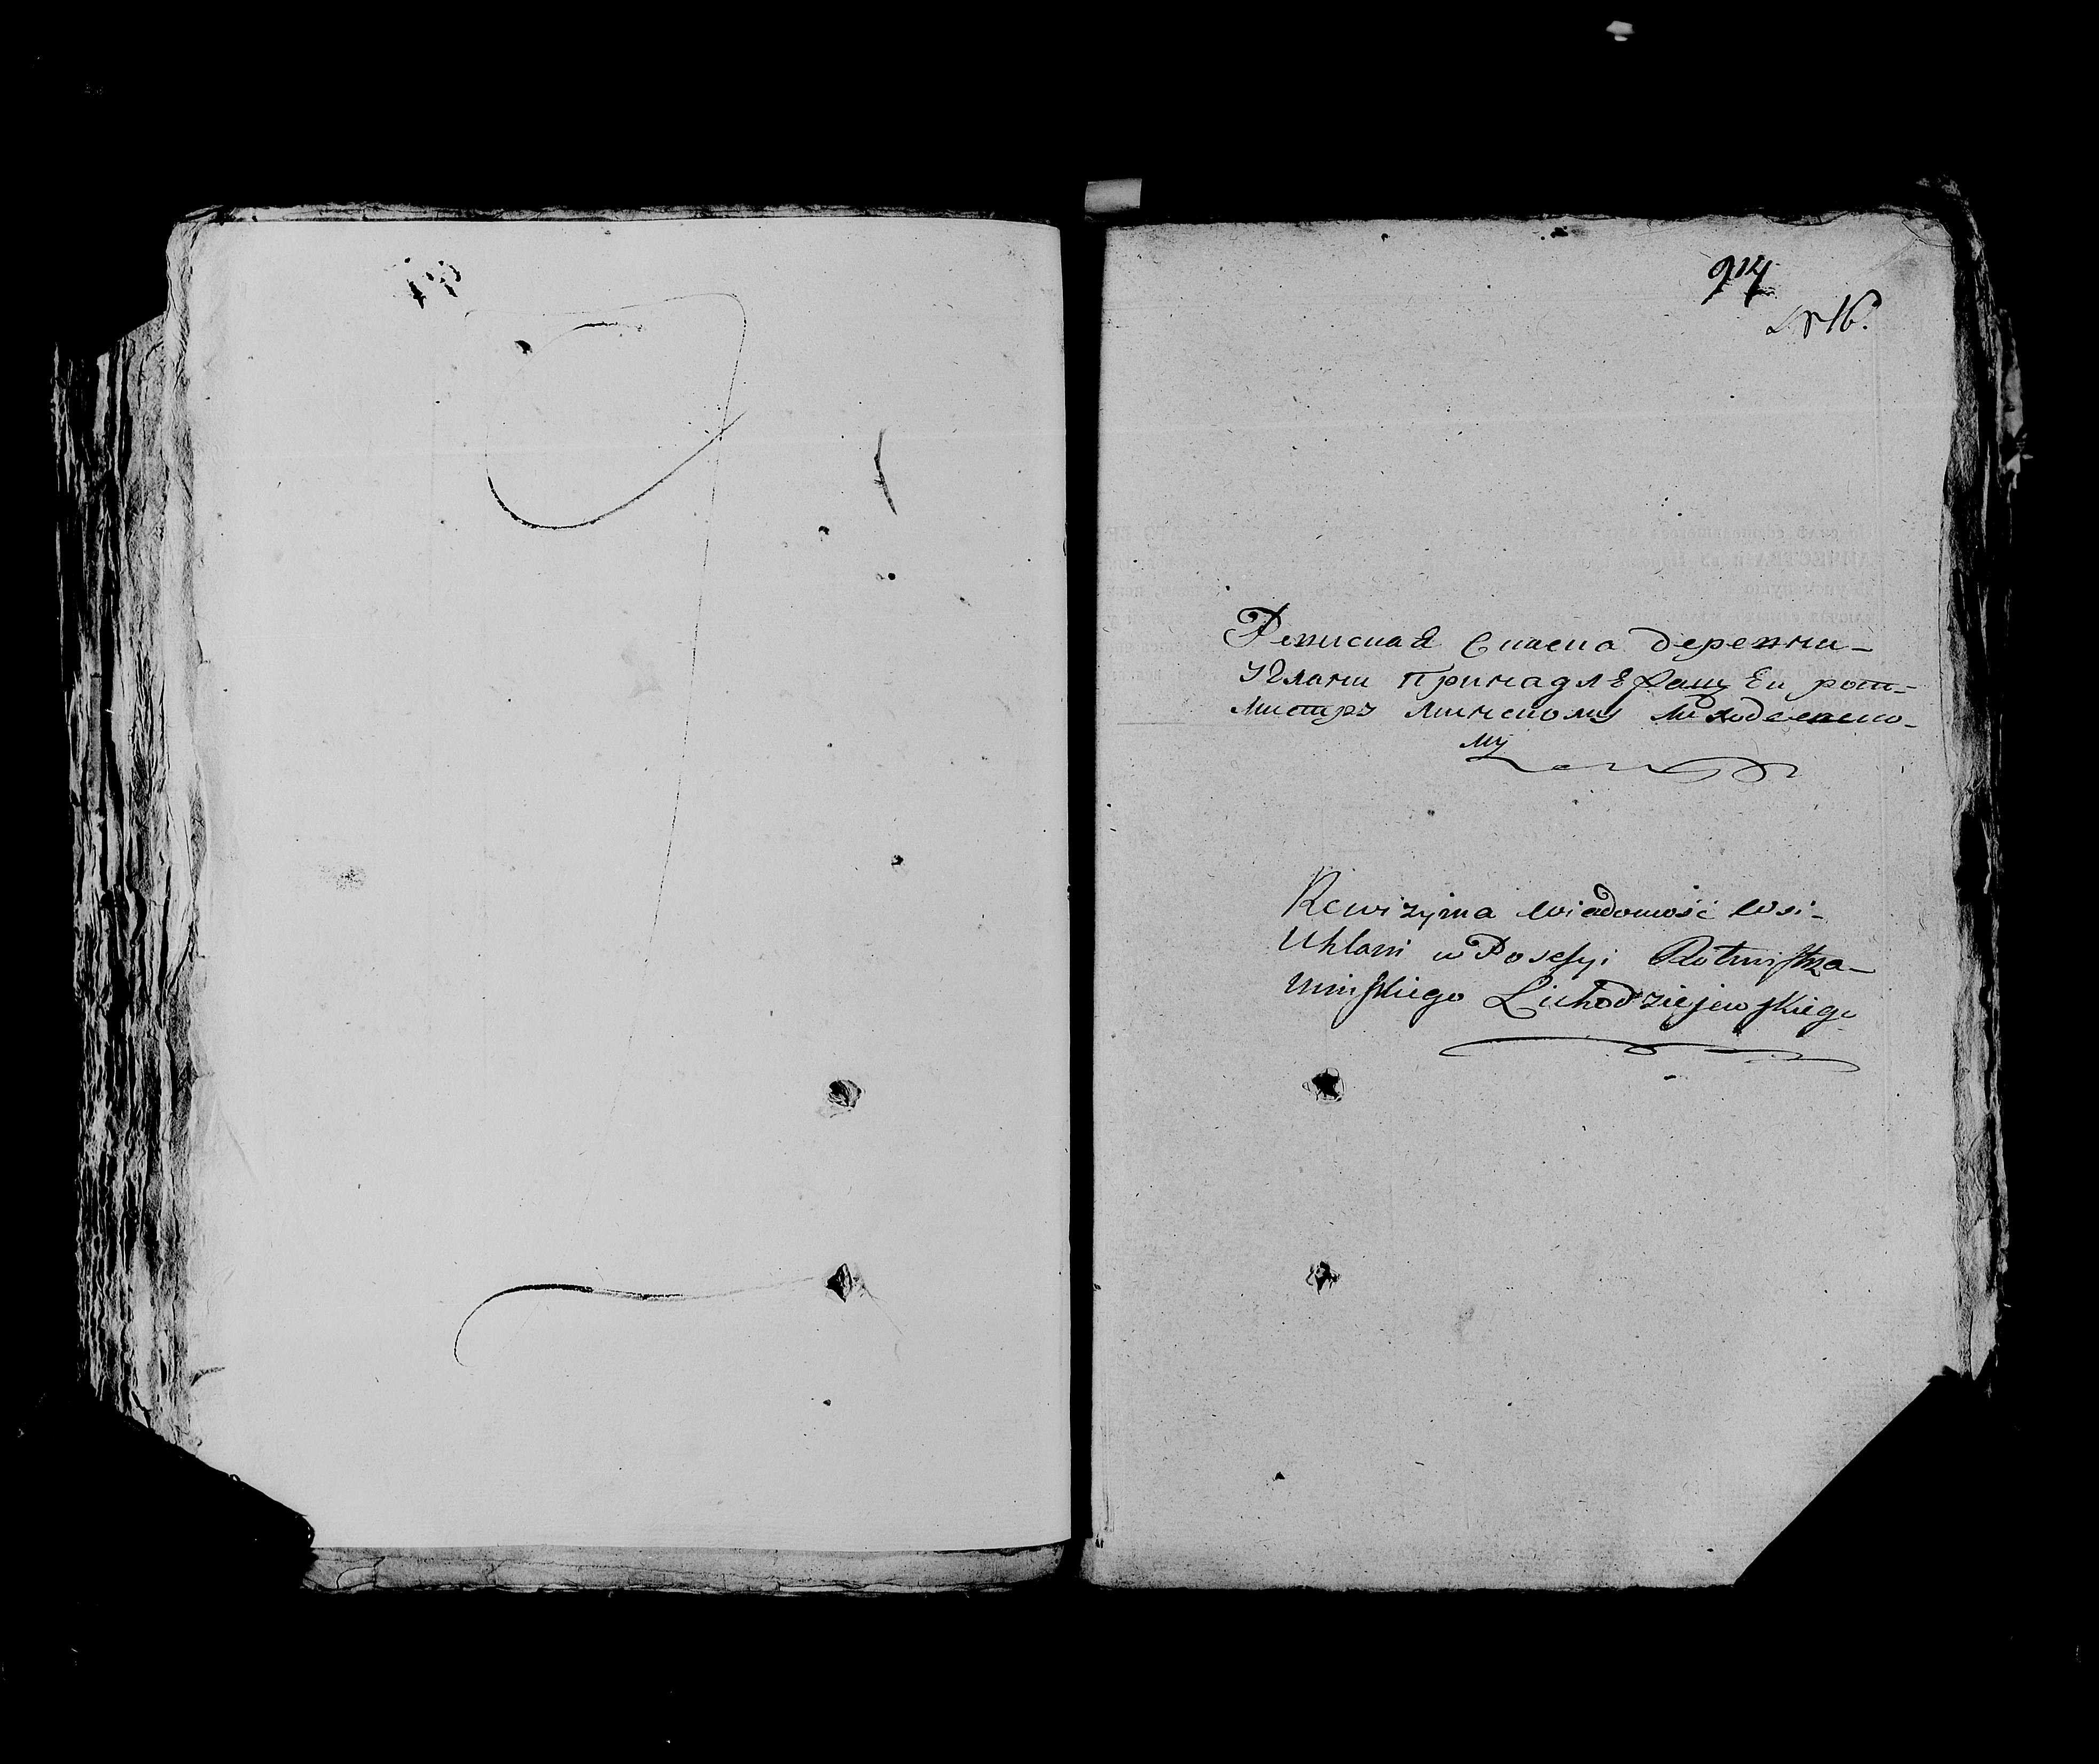 914
Nr 16.
Ревиская Скаска деревни-
Углани принадлежащей рот-
мистру минскому лиходеевско-
му
Rewizyina wiadomość wsi-
Uhlani w Posesyi Rotmistrza-
minskiego Lichodziejewskiego